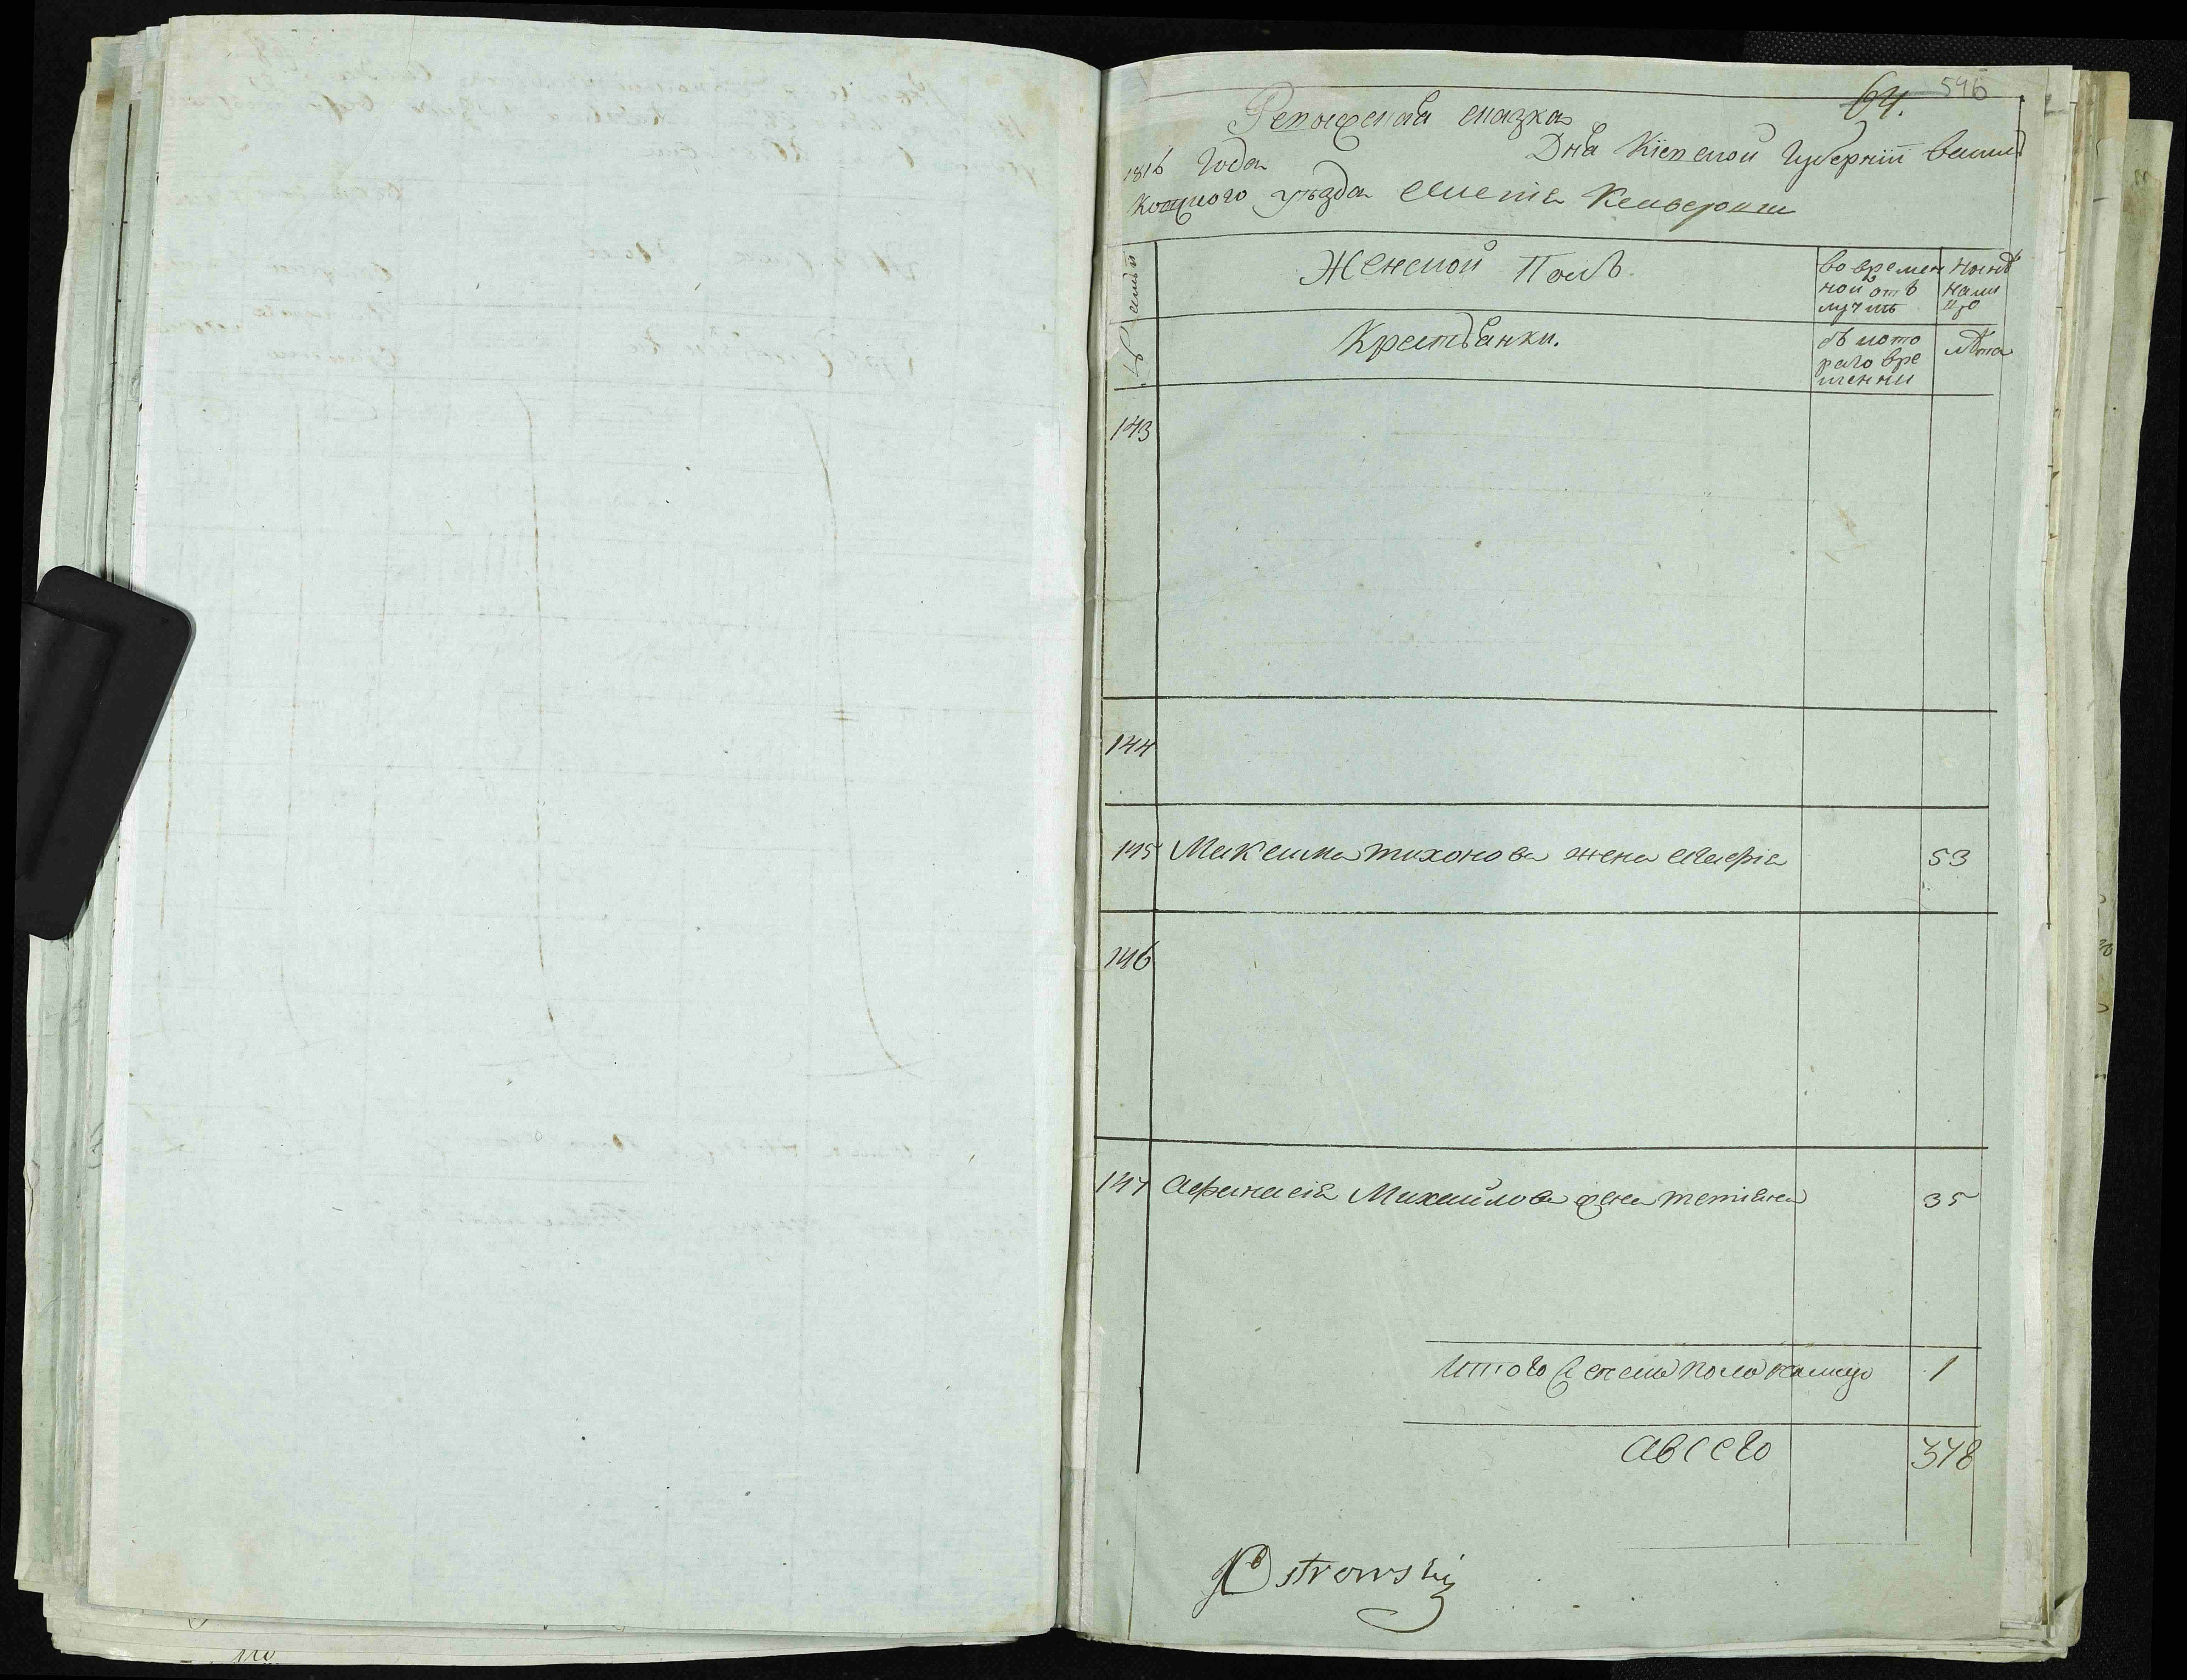 64. 596
Ревизская сказка
1816 Года Дня Кіевской Губерніи васил
ковского уѣзда
№ семьи
Женской Полъ.
во времен
ной отъ
лучкѣ
нынѣ
нали
цо
Крестьянки.
съ кото
раго вре
менни
лѣта
143
144
145 Максима тихонова жена Марія 53
146
147 Афанасія Михайлова жена тетіана 35
Итого женска пола налицо 1
Авсего 378
Ostrowski